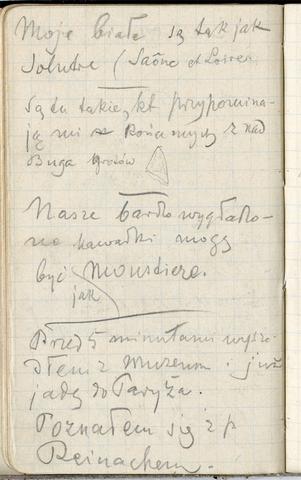 Moje białe są tak jak
Solutré (Saône et Loire)
Są tu takie, kt przypomina-
ją mi z nad
Buga grotów
Nasze bardo wygładzo-
ne kawałki mogą
być Moustiere.
jak
Przed 5 minutami wysze-
dłem z muzeum i już
jadę do Paryża.
Poznałem się z p
Reinachem.